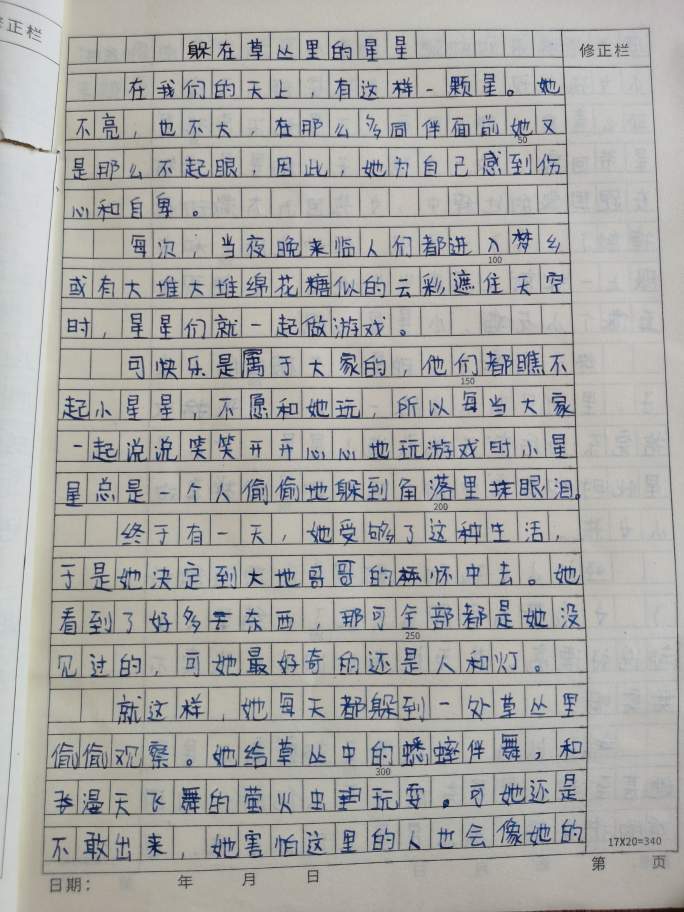 修正栏
躲在草丛里的星星
修正栏
在我们的天上，有这样一颗星。她
不亮，也不大，在那么多同伴面前她又
50
是那么不起眼，因此，她为自己感到伤
心和自卑。
每次，当夜晚来临人们都进入梦乡
100
或有大堆大堆绵花糖似的云彩遮住天空
时，星星们就一起做游戏。
可快乐是属于大家的，他们都瞧不
150
起小星星，不愿和她玩，所以每当大家
一起说说笑笑开开心心地玩游戏时小星
星总是一个人偷偷地躲到角落里抹眼泪。
200
终于有一天，她受够了这种生活，
于是她决定到大地哥哥的怀中去。她
看到了好多东西，那可全部都是她没
250
见过的，可她最好奇的还是人和灯。
就这样，她每天都躲到一处草丛里
偷偷观察。她给草丛中的蟋蟀伴舞，和
300
漫天飞舞的萤火虫玩耍。可她还是
不敢出来，她害怕这里的人也会像她的
17X20=340
日期： 年 月 日
第 页